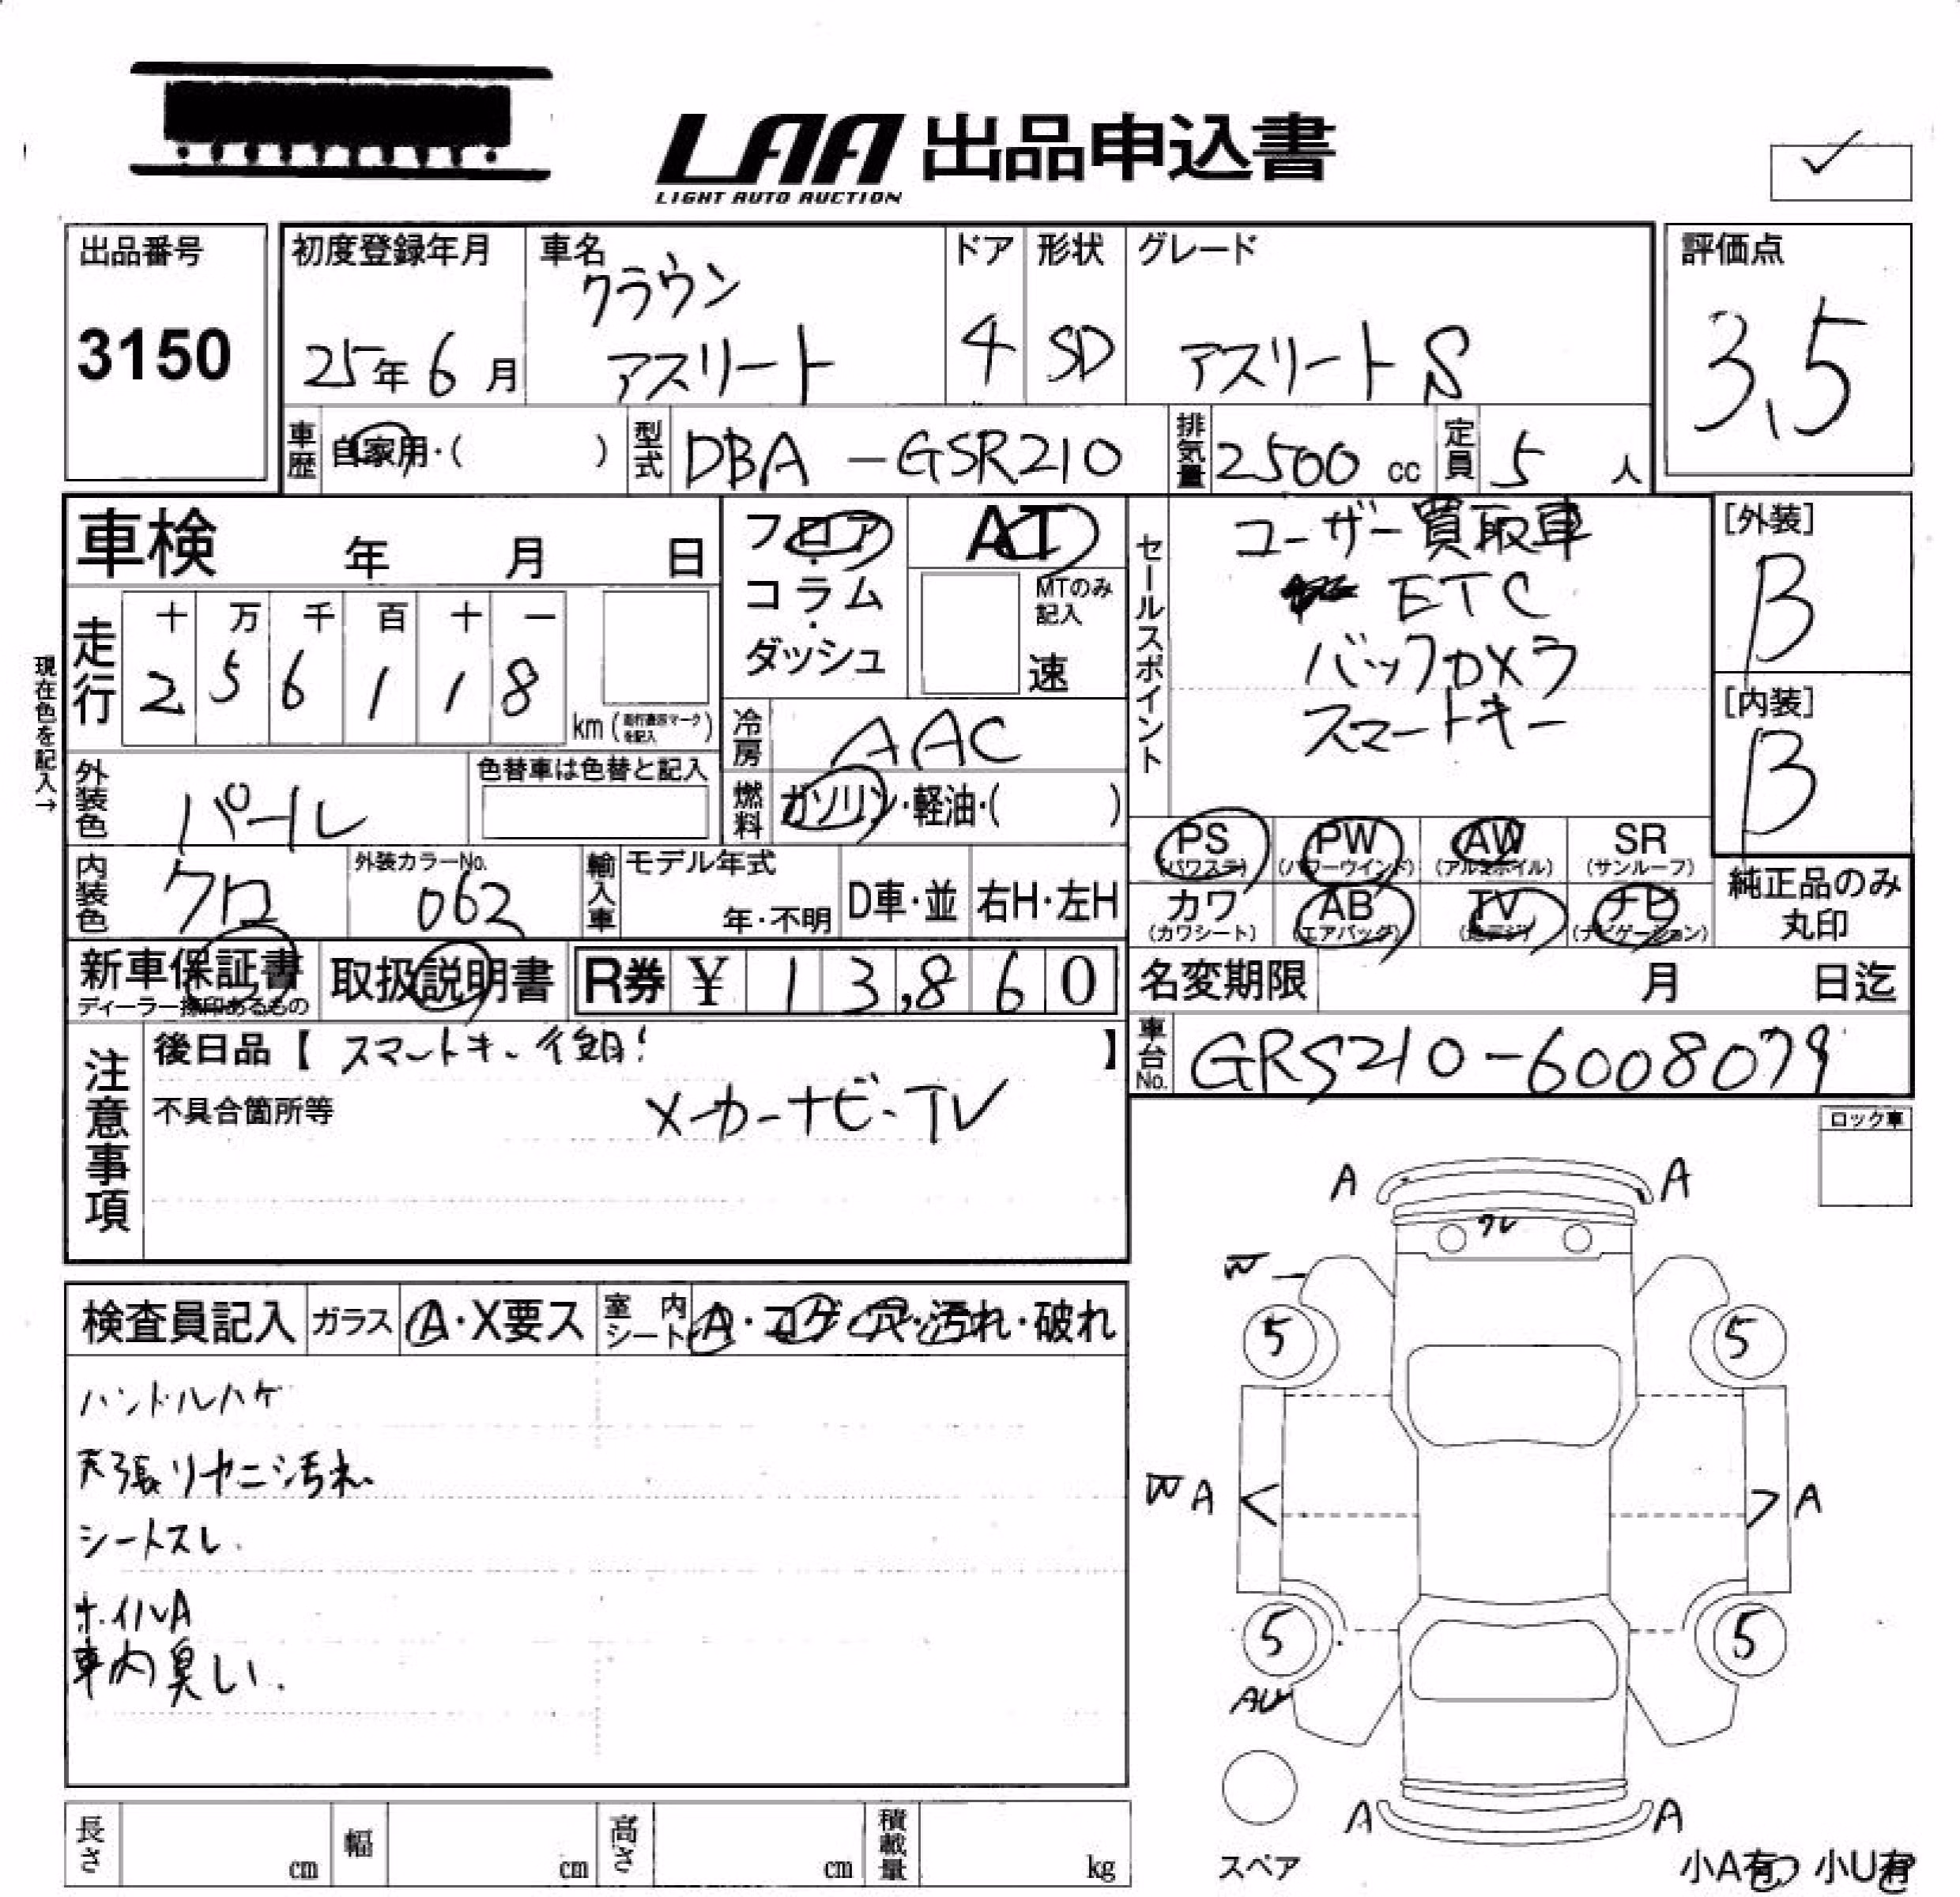 LAA 出品申込書
LIGHT AUTO AUCTION
出品番号
3150
初度登録年月
25年6月
車名
クラウン
アスリート
ドア
4
形状
SD
グレード
アスリートS
評価点
3.5
車歴 自家用・( )
型式 DBA-GSR210
排気量 2500 cc
定員 5 人
車検 年 月 日
フロア・コラム・ダッシュ
AT
MTのみ記入
速
セールスポイント
ユーザー買取車
ETC
バックカメラ
スマートキー
[外装]
B
[内装]
B
現在色を記入→
走行
十 万 千 百 十 一
2 5 6 1 1 8
km (走行表示マークを記入)
冷房 AAC
燃料 ガソリン・軽油・( )
外装色 パール
色替車は色替と記入
内装色 クロ
外装カラーNo.
062
輸入車
モデル年式
年・不明
D車・並
右H・左H
PS (パワステ)
PW (パワーウインド)
AW (アルミホイル)
SR (サンルーフ)
カワ (カワシート)
AB (エアバッグ)
TV (地デジ)
ナビ (ナビゲーション)
純正品のみ
丸印
新車保証書
ディーラー捺印あるもの
取扱説明書
R券 ¥ 13,860
名変期限 月 日迄
車台No. GRS210-6008079
注意事項
後日品【スマートキー 】
不具合箇所等
メーカーナビ・TV
ロック車
検査員記入
ガラス A・X要ス
室内シート A・コゲ・穴・汚れ・破れ
ハンドルハゲ
天張リヤニ汚れ
シートスレ.
ホイルA
車内臭い.
A A
W
5 5
W A A
5 5
A A
スペア
長さ cm
幅 cm
高さ cm
積載量 kg
小A有 小U有